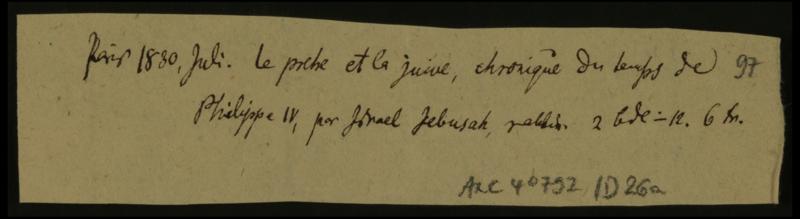 Paris 1830, Juli. Le prêtre et la juive, chronique du temps de 97
Philippe IV, par Israel Jebusah, rabbin. 2 Bde in-12. 6 fr.
ARC 4° 792 / D 26a